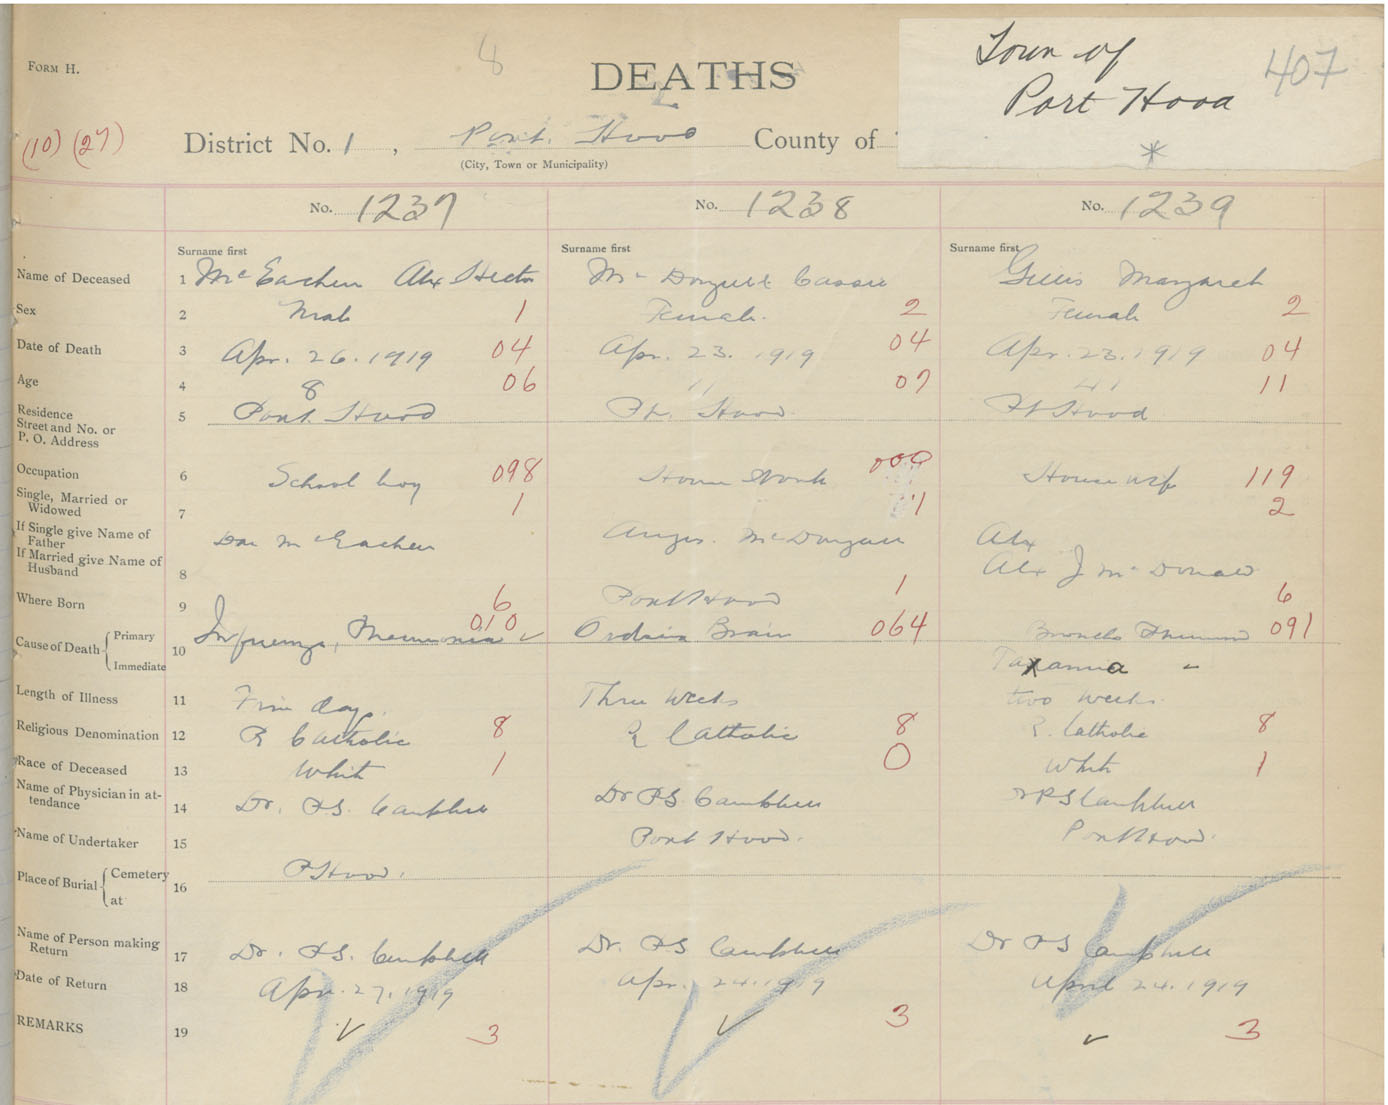 FORM H.
8
DEATHS
Town of
Port Hood
407
*
(10) (27)
District No. 1, Port. Hood County of
(City, Town or Municipality)
No. 1237 No. 1238 No. 1239
Surname first Surname first Surname first
Name of Deceased 1 McEachen Alex Hector Mc Dougall Cassie Gillis Margaret
Sex 2 Male 1 Female. 2 Female 2
Date of Death 3 Apr. 26. 1919 04 Apr. 23. 1919 04 Apr. 23. 1919 04
Age 4 8 06 11 07 41 11
Residence
Street and No. or
P. O. Address 5 Port. Hood Pt. Hood. Pt Hood
Occupation 6 School boy 098 House Work 000 House wife 119
Single, Married or
Widowed 7 1 1 2
If Single give Name of
Father Dan McEachen Angus. McDougall Alex
If Married give Name of
Husband 8 Alex J Mc Donald
Where Born 9 6 Port Hood 1 6
Cause of Death { Primary 10 Influenza, Pneumonia 010 Brain 064 Broncho Pneumonia 091
Immediate
Length of Illness 11 Five days. Three Weeks two weeks.
Religious Denomination 12 R Catholic 8 R Catholic 8 R. Catholic 8
Race of Deceased 13 White 1 0 White 1
Name of Physician in at-
tendance 14 Dr. P.S. Campbell Dr P.S. Campbell Dr P S Campbell
Name of Undertaker 15 Port Hood. Port Hood.
Place of Burial { Cemetery 16 P Hood.
at
Name of Person making
Return 17 Dr. P.S. Campbell Dr. P.S Campbell Dr P S Campbell
Date of Return 18 Apr. 27. 1919 Apr. 24. 1919 April 24. 1919
REMARKS 19 3 3 3